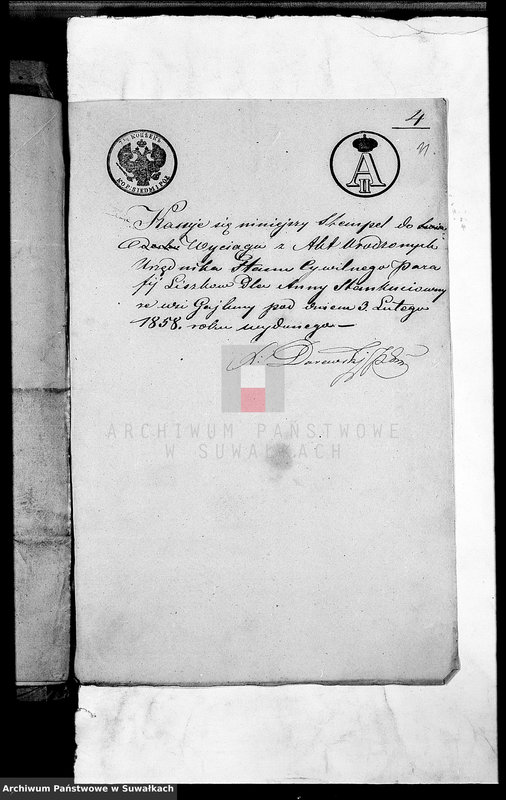 4
11.
7½ KOPEEK
KOP. SIEDM I PÓŁ
A II
Kasuje się niniejszy Stempel do
Wyciągu z Akt Urodzonych
Urzędnika Stanu Cywilnego para
fij Liszkow Dla Anny Stankuciowny
ze wsi Gajluny pod dniem 3. Lutego
1858. roku wydanego—
Darewski
ARCHIWUM PAŃSTWOWE
W SUWAŁKACH
Archiwum Państwowe w Suwałkach